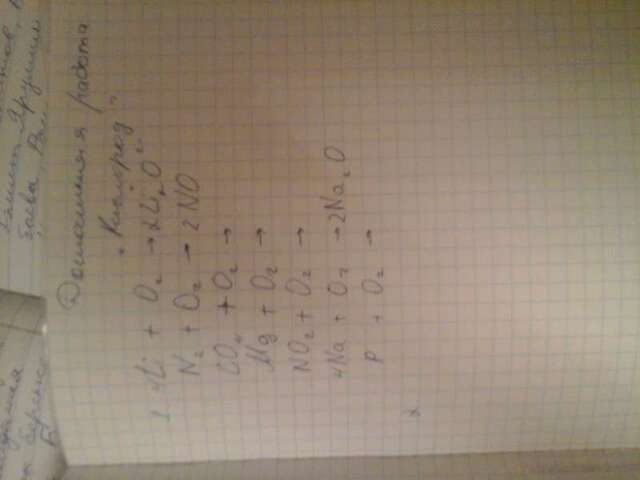 Домашняя работа
"Кислород"
1. 4Li + O₂ → 2Li₂O
N₂ + O₂ → 2NO
CO₂ + O₂ →
Mg + O₂ →
NO₂ + O₂ →
4Na + O₂ → 2Na₂O
P + O₂ →
2